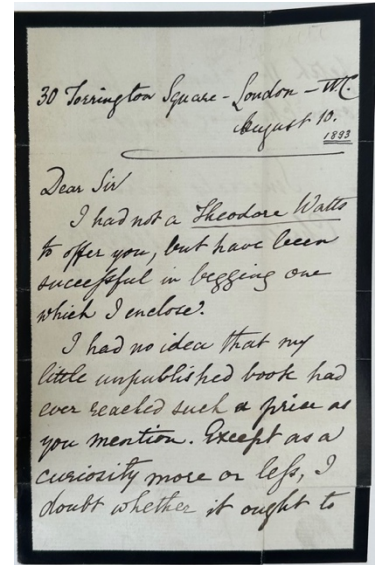 30 Torrington Square - London - W.C.
August 10.
1893
Dear Sir
I had not a Theodore Watts
to offer you, but have been
successful in begging one
which I enclose.
I had no idea that my
little unpublished book had
ever reached such a price as
you mention. Except as a
curiosity more or less, I
doubt whether it ought to